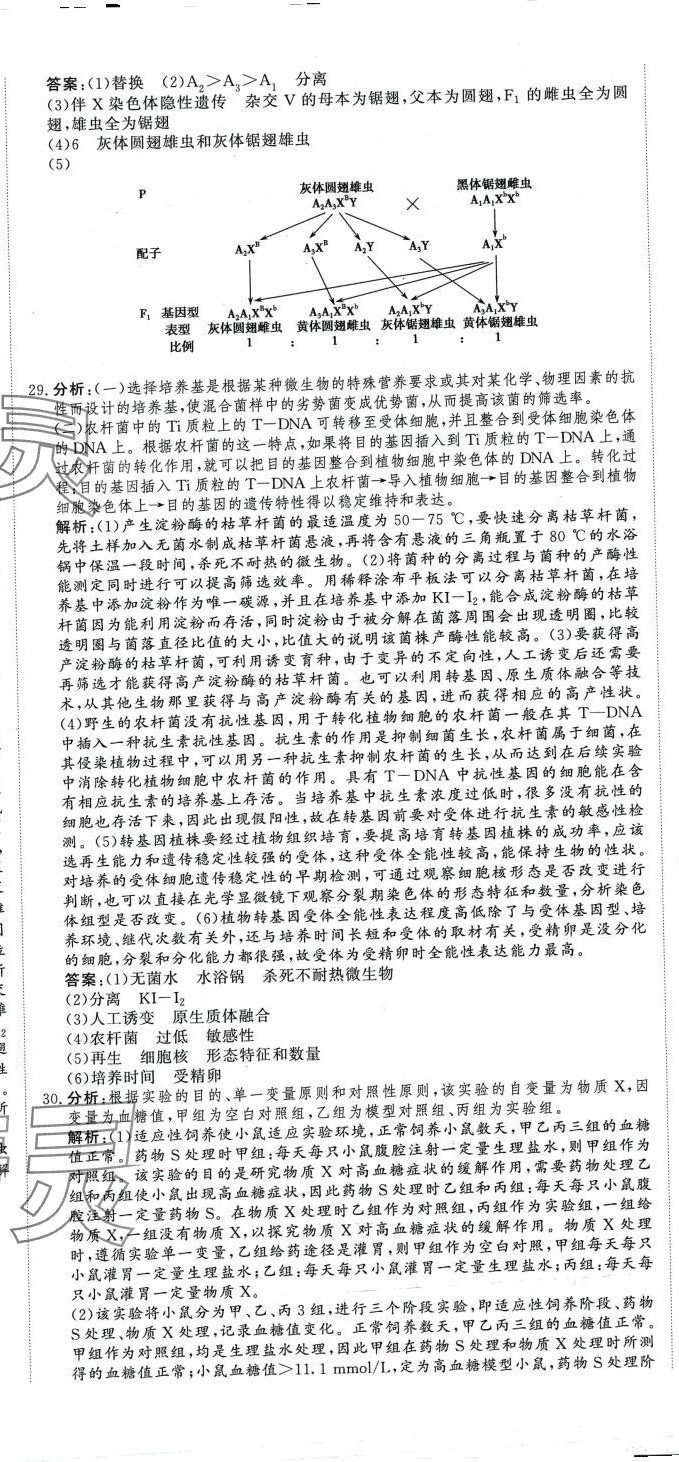 答案:(1)替换 (2)A₂>A₃>A₁ 分离
(3)伴 X 染色体隐性遗传 杂交 V 的母本为锯翅,父本为圆翅,F₁ 的雌虫全为圆
翅,雄虫全为锯翅
(4)6 灰体圆翅雄虫和灰体锯翅雄虫
(5)
P 灰体圆翅雄虫 黑体锯翅雌虫
A₂A₃XᴮY × A₁A₁XᵇXᵇ
配子 A₂Xᴮ A₃Xᴮ A₂Y A₃Y A₁Xᵇ
F₁ 基因型 A₂A₁XᴮXᵇ A₃A₁XᴮXᵇ A₂A₁XᵇY A₃A₁XᵇY
表型 灰体圆翅雌虫 黄体圆翅雌虫 灰体锯翅雄虫 黄体锯翅雄虫
比例 1 : 1 : 1 : 1
29.分析:(一)选择培养基是根据某种微生物的特殊营养要求或其对某化学、物理因素的抗
性而设计的培养基,使混合菌样中的劣势菌变成优势菌,从而提高该菌的筛选率。
(二)农杆菌中的 Ti 质粒上的 T-DNA 可转移至受体细胞,并且整合到受体细胞染色体
的 DNA 上。根据农杆菌的这一特点,如果将目的基因插入到 Ti 质粒的 T-DNA 上,通
过农杆菌的转化作用,就可以把目的基因整合到植物细胞中染色体的 DNA 上。转化过
程:目的基因插入 Ti 质粒的 T-DNA 上农杆菌→导入植物细胞→目的基因整合到植物
细胞染色体上→目的基因的遗传特性得以稳定维持和表达。
解析:(1)产生淀粉酶的枯草杆菌的最适温度为 50-75 ℃,要快速分离枯草杆菌,
先将土样加入无菌水制成枯草杆菌悬液,再将含有悬液的三角瓶置于 80 ℃的水浴
锅中保温一段时间,杀死不耐热的微生物。(2)将菌种的分离过程与菌种的产酶性
能测定同时进行可以提高筛选效率。用稀释涂布平板法可以分离枯草杆菌,在培
养基中添加淀粉作为唯一碳源,并且在培养基中添加 KI-I₂,能合成淀粉酶的枯草
杆菌因为能利用淀粉而存活,同时淀粉由于被分解在菌落周围会出现透明圈,比较
透明圈与菌落直径比值的大小,比值大的说明该菌株产酶性能较高。(3)要获得高
产淀粉酶的枯草杆菌,可利用诱变育种,由于变异的不定向性,人工诱变后还需要
再筛选才能获得高产淀粉酶的枯草杆菌。也可以利用转基因、原生质体融合等技
术,从其他生物那里获得与高产淀粉酶有关的基因,进而获得相应的高产性状。
(4)野生的农杆菌没有抗性基因,用于转化植物细胞的农杆菌一般在其 T—DNA
中插入一种抗生素抗性基因。抗生素的作用是抑制细菌生长,农杆菌属于细菌,在
其侵染植物过程中,可以用另一种抗生素抑制农杆菌的生长,从而达到在后续实验
中消除转化植物细胞中农杆菌的作用。具有 T-DNA 中抗性基因的细胞能在含
有相应抗生素的培养基上存活。当培养基中抗生素浓度过低时,很多没有抗性的
细胞也存活下来,因此出现假阳性,故在转基因前要对受体进行抗生素的敏感性检
测。(5)转基因植株要经过植物组织培育,要提高培育转基因植株的成功率,应该
选再生能力和遗传稳定性较强的受体,这种受体全能性较高,能保持生物的性状。
对培养的受体细胞遗传稳定性的早期检测,可通过观察细胞核形态是否改变进行
判断,也可以直接在光学显微镜下观察分裂期染色体的形态特征和数量,分析染色
体组型是否改变。(6)植物转基因受体全能性表达程度高低除了与受体基因型、培
养环境、继代次数有关外,还与培养时间长短和受体的取材有关,受精卵是没分化
的细胞,分裂和分化能力都很强,故受体为受精卵时全能性表达能力最高。
答案:(1)无菌水 水浴锅 杀死不耐热微生物
(2)分离 KI-I₂
(3)人工诱变 原生质体融合
(4)农杆菌 过低 敏感性
(5)再生 细胞核 形态特征和数量
(6)培养时间 受精卵
30.分析:根据实验的目的、单一变量原则和对照性原则,该实验的自变量为物质 X,因
变量为血糖值,甲组为空白对照组,乙组为模型对照组、丙组为实验组。
解析:(1)适应性饲养使小鼠适应实验环境,正常饲养小鼠数天,甲乙丙三组的血糖
值正常。药物 S 处理时甲组:每天每只小鼠腹腔注射一定量生理盐水,则甲组作为
对照组。该实验的目的是研究物质 X 对高血糖症状的缓解作用,需要药物处理乙
组和丙组使小鼠出现高血糖症状,因此药物 S 处理时乙组和丙组:每天每只小鼠腹
腔注射一定量药物 S。在物质 X 处理时乙组作为对照组,丙组作为实验组,一组给
物质 X,一组没有物质 X,以探究物质 X 对高血糖症状的缓解作用。物质 X 处理
时,遵循实验单一变量,乙组给药途径是灌胃,则甲组作为空白对照,甲组每天每只
小鼠灌胃一定量生理盐水;乙组:每天每只小鼠灌胃一定量生理盐水;丙组:每天每
只小鼠灌胃一定量物质 X。
(2)该实验将小鼠分为甲、乙、丙 3 组,进行三个阶段实验,即适应性饲养阶段、药物
S 处理、物质 X 处理,记录血糖值变化。正常饲养数天,甲乙丙三组的血糖值正常。
甲组作为对照组,均是生理盐水处理,因此甲组在药物 S 处理和物质 X 处理时所测
得的血糖值正常;小鼠血糖值>11.1 mmol/L,定为高血糖模型小鼠,药物 S 处理阶